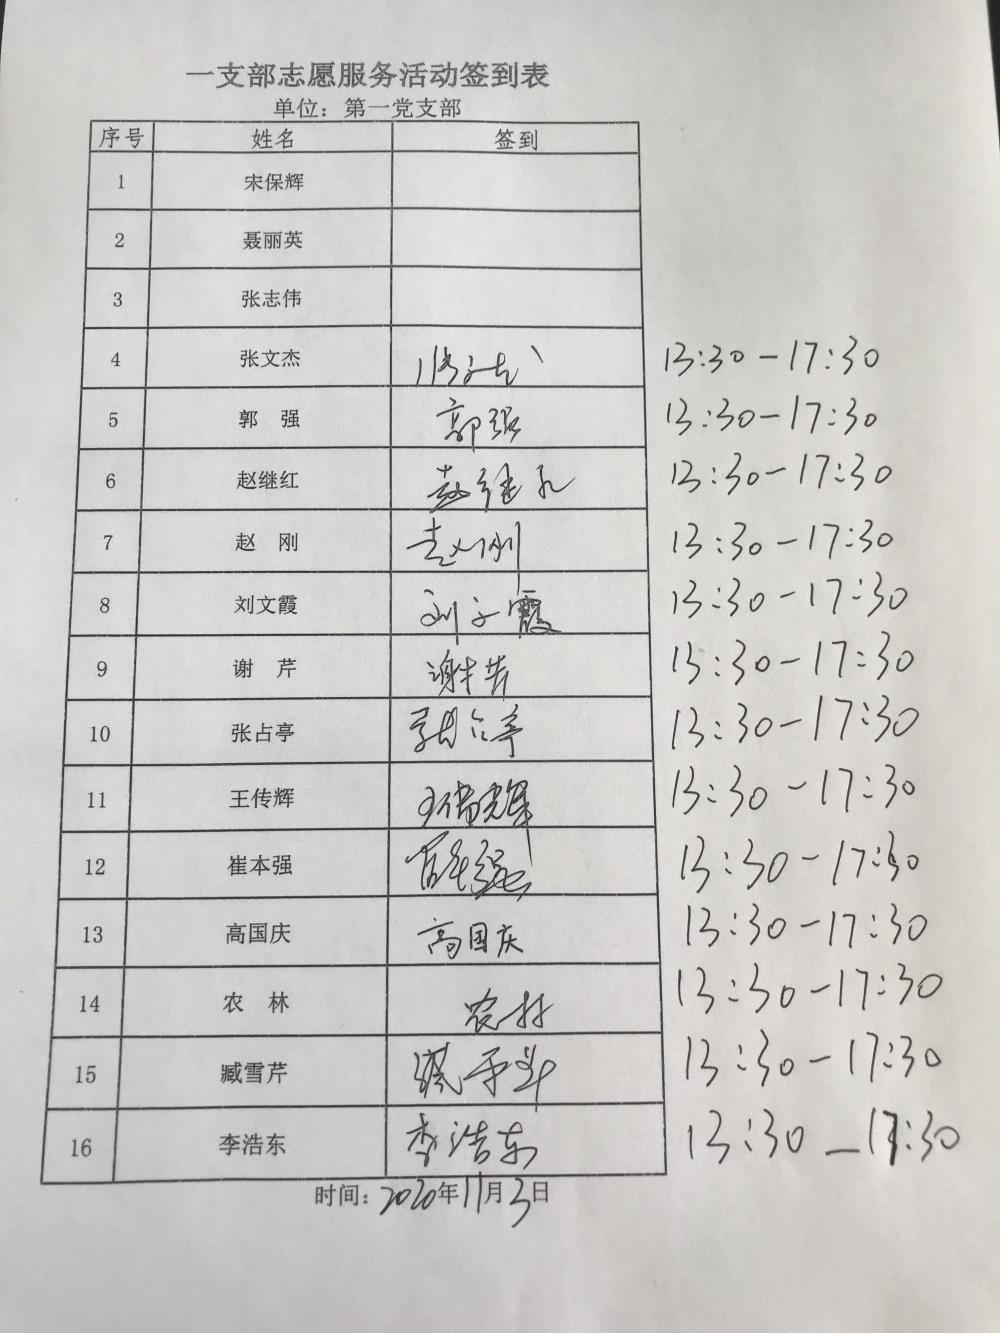 一支部志愿服务活动签到表
单位：第一党支部
序号 姓名 签到
1 宋保辉
2 聂丽英
3 张志伟
4 张文杰 13:30-17:30
5 郭 强 郭强 13:30-17:30
6 赵继红 赵继红 13:30-17:30
7 赵 刚 赵刚 13:30-17:30
8 刘文霞 刘文霞 13:30-17:30
9 谢 芹 谢芹 13:30-17:30
10 张占亭 张占亭 13:30-17:30
11 王传辉 王传辉 13:30-17:30
12 崔本强 崔本强 13:30-17:30
13 高国庆 高国庆 13:30-17:30
14 农 林 农林 13:30-17:30
15 臧雪芹 13:30-17:30
16 李浩东 李浩东 13:30-17:30
时间：2020年11月3日